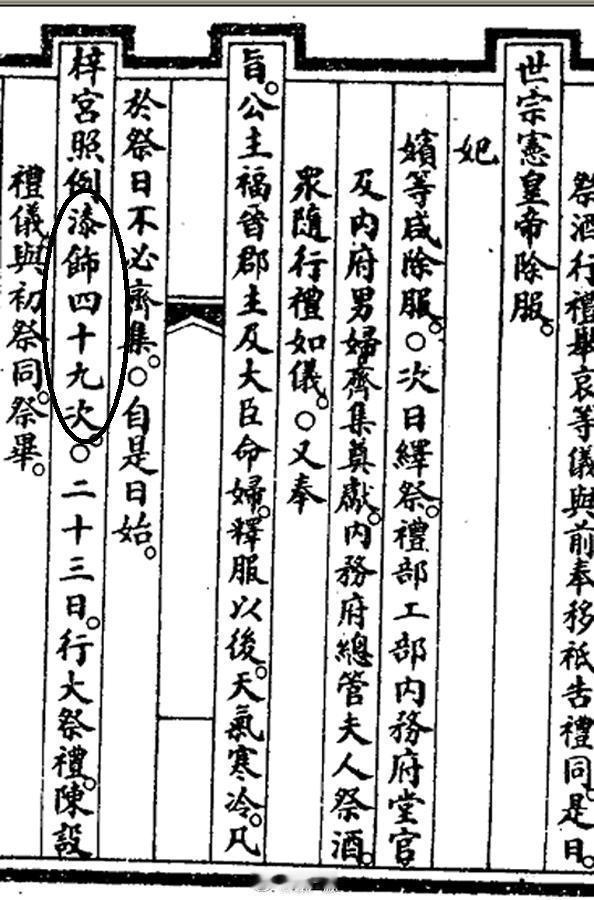 祭酒行禮舉哀等儀與前奉移祇告禮同。是日。
世宗憲皇帝除服。
妃
嬪等咸除服。○次日繹祭。禮部工部內務府堂官
及內府男婦齊集奠獻。內務府總管夫人祭酒。
衆隨行禮如儀。○又奉
旨。公主福晉郡主及大臣命婦。釋服以後。天氣寒冷。凡
於祭日不必齊集。○自是日始。
梓宮照例漆飾四十九次。○二十三日。行大祭禮。陳設
禮儀與初祭同。祭畢。